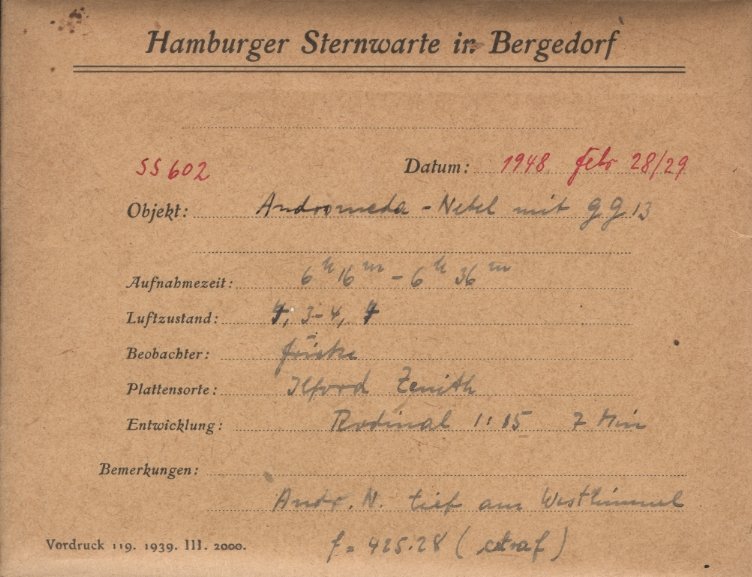 Hamburger Sternwarte in Bergedorf
SS 602 Datum: 1948 Febr 28/29
Objekt: Andromeda-Nebel mit gg 13
Aufnahmezeit: 6h 16m - 6h 36m
Luftzustand: 7, 3-4, 7
Beobachter:
Plattensorte: Ilford Zenith
Entwicklung: Rodinal 1:15 7 Min
Bemerkungen:
Andr. N. tief am Westhimmel
f = 425.28 (
Vordruck 119. 1939. III. 2000.